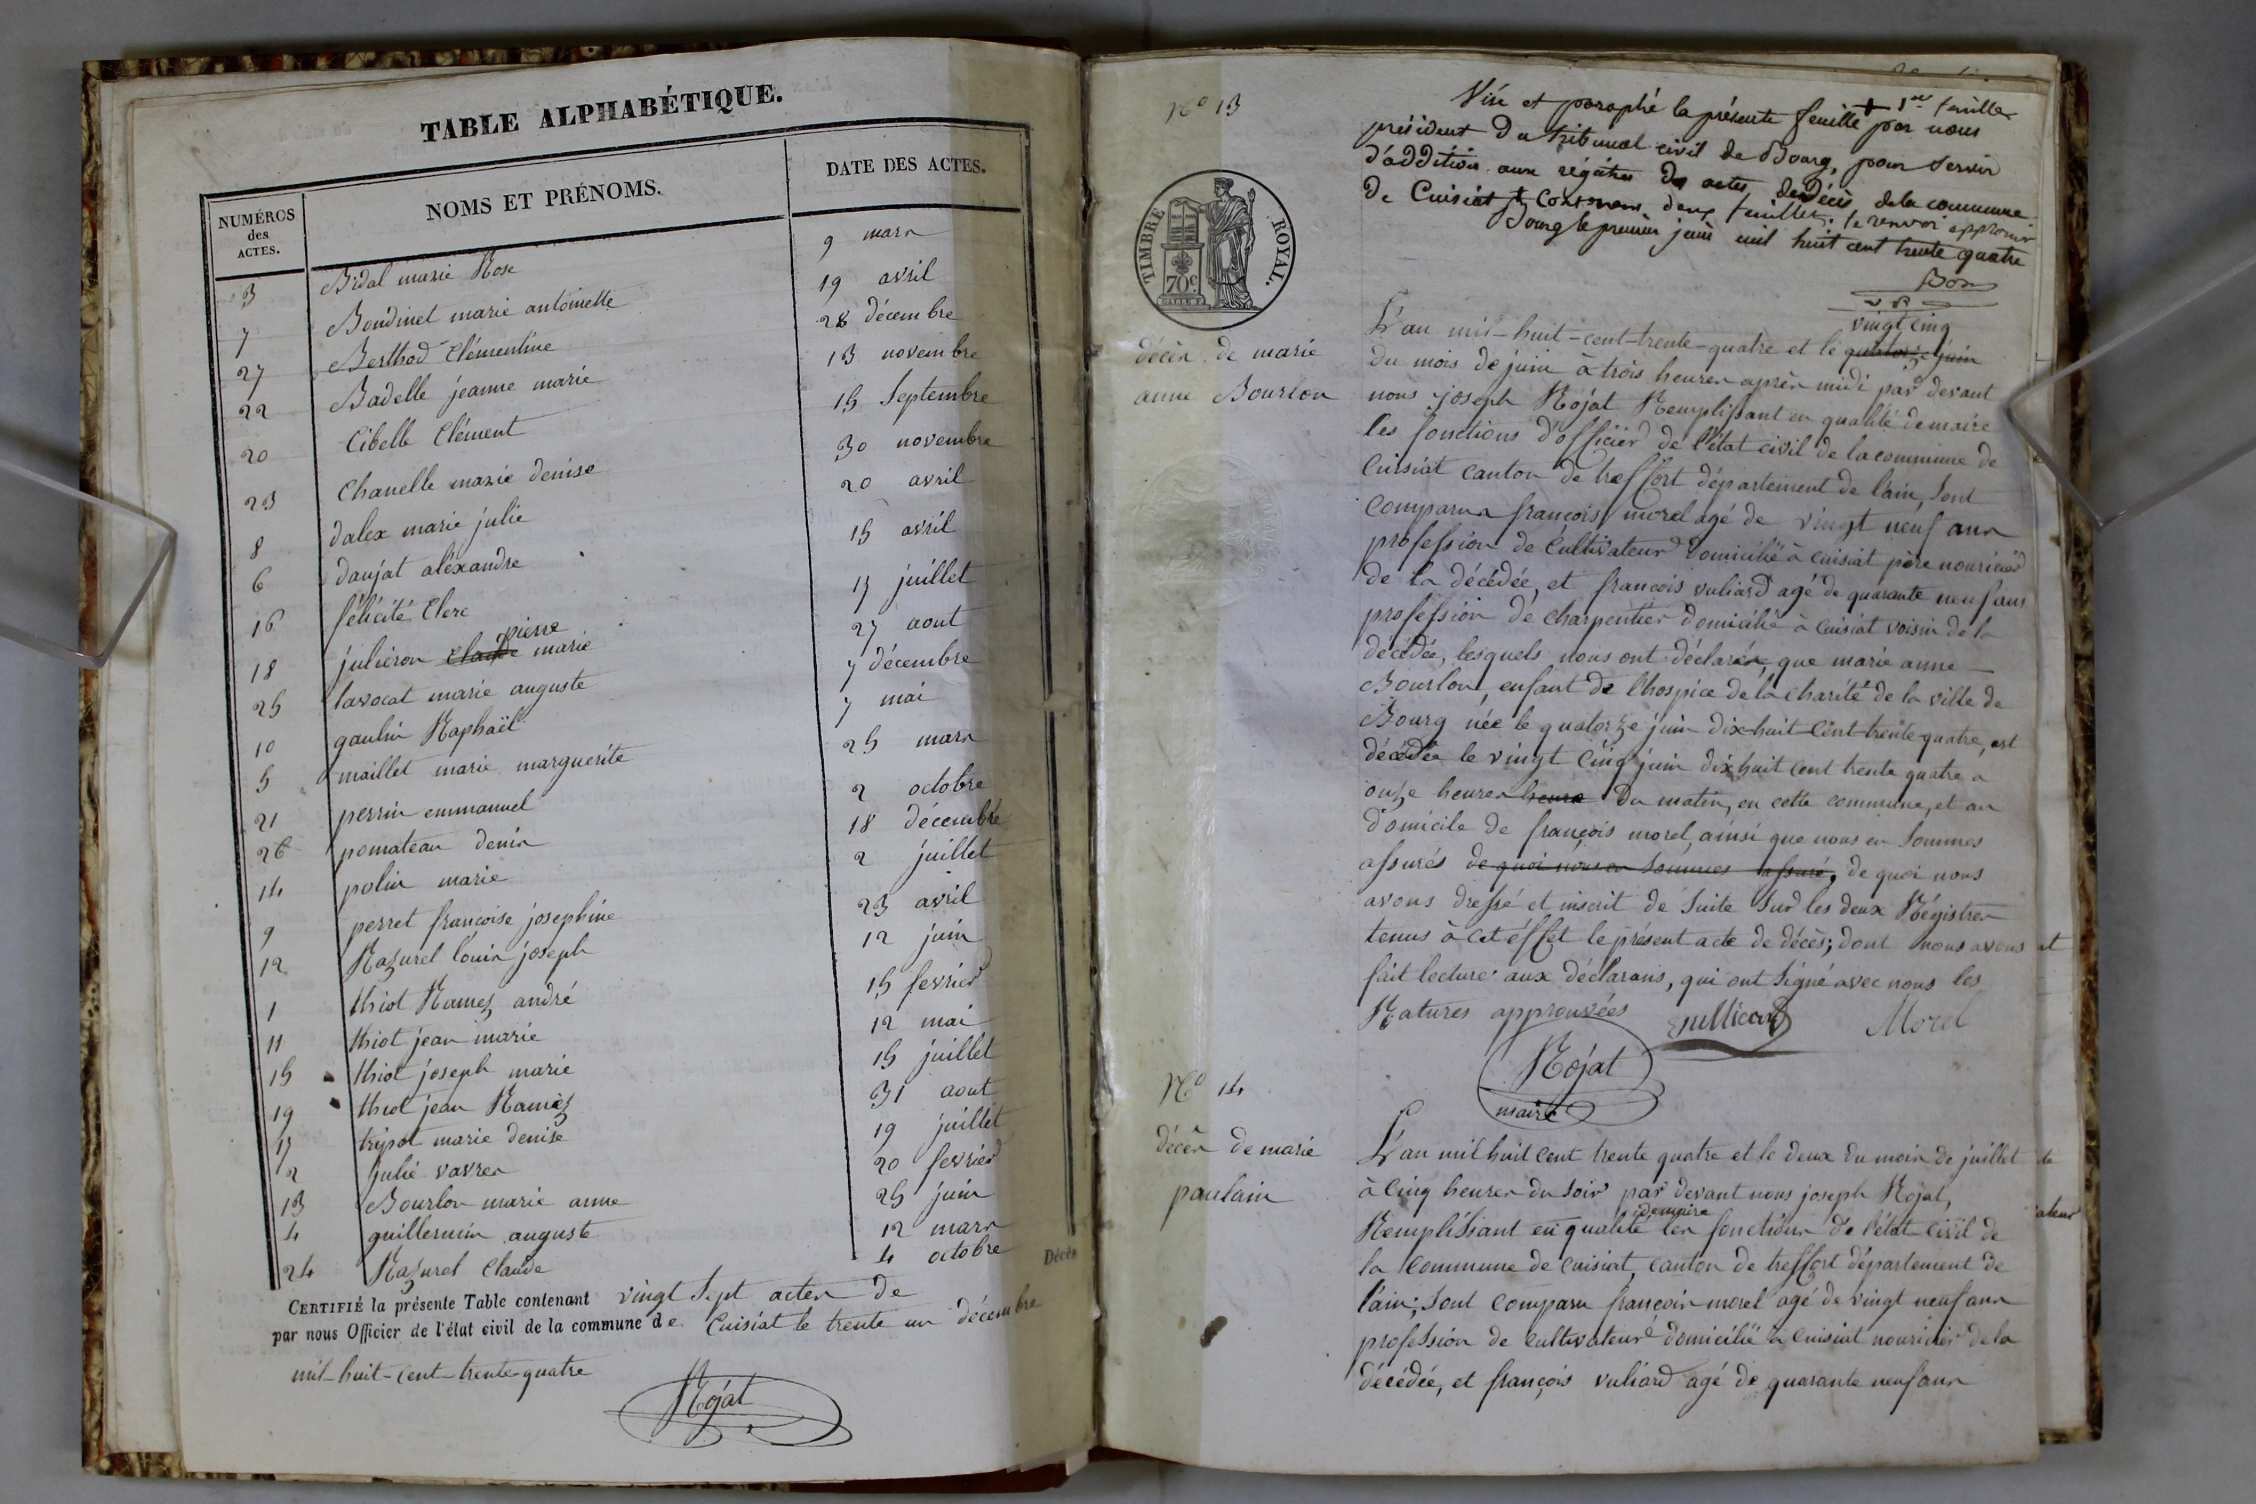 TABLE ALPHABÉTIQUE.
NUMÉROS des ACTES. NOMS ET PRÉNOMS. DATE DES ACTES.
3 Bidal marie Rose 9 mars
7 Boudinet marie antoinette 19 avril
27 Berthod Clémentine 28 décembre
22 Badelle jeanne marie 13 novembre
20 Cibelle Clément 15 Septembre
23 Chanelle marie denise 30 novembre
8 dalex marie julie 20 avril
6 daujat aléxandre 15 avril
16 félicité Clerc 17 juillet
18 julieron claude pierre marie 27 aout
25 lavocat marie auguste 7 décembre
10 gaulin Raphaël 7 mai
5 maillet marie marguerite 25 mars
21 perrin emmanuel 2 octobre
26 pomateau denis 18 décembre
14 polin marie 2 juillet
9 perret francoise josephine 23 avril
12 Razurel louis joseph 12 juin
1 thiot Ramez andré 15 fevrier
11 thiot jean marie 12 mai
15 thiot joseph marie 15 juillet
19 thiot jean Ramèz 31 aout
17 tripot marie denise 19 juillet
2 julie vavrer 20 fevrier
13 Bourlon marie anne 25 juin
4 guillermin auguste 12 mars
24 Razurel Claude 4 octobre
Décès
CERTIFIÉ la présente Table contenant vingt Sept actes de
par nous Officier de l'état civil de la commune de Cuisiat le trente un décembre
mil-huit-cent-trente-quatre
Rojat
N° 13
Visé et paraphé la présente feuille + par nous
+ 1re feuille
président du tribunal civil de Bourg, pour servir
d'addition aux régistres des actes de Décès de la commune
de Cuisiat + Contenant deux feuilles. le renvoi approuvé
Bourg le premier juin mil huit cent trente quatre
TIMBRE ROYAL.
70c.
décès de marie
anne Bourlon
vingt cinq
L'an mil-huit-cent-trente-quatre et le quatorze juin
du mois de juin à trois heures après midi par devant
nous joseph Rojat Remplissant en qualité de maire
les fonctions d'officier de l'état civil de la commune de
Cuisiat canton de treffort département de l'ain, sont
Comparus françois morel agé de vingt neuf ans
profession de Cultivateur domicilié à cuisiat père nouricier
de la décédée, et françois vuliard agé de quarante neuf ans
profession de charpentier domicilié à cuisiat voisin de la
décédée, lesquels nous ont déclarés, que marie anne
Bourlon, enfant de l'hospice de la charité de la ville de
Bourg née le quatorze juin dix-huit-cent-trente-quatre, est
décédée le vingt cinq juin dix huit cent trente quatre a
onze heures heure du matin, en cette commune, et au
domicile de françois morel, ainsi que nous en sommes
assurés de quoi nous en sommes assuré, de quoi nous
avons dressé et inscrit de suite sur les deux Régistres
tenus à cet éffet le présent acte de décès; dont nous avons
fait lecture aux déclarans, qui ont signé avec nous les
Ratures approuvées
Morel
Rojat
maire
N° 14
décès de marie
paulain
L'an mil huit cent trente quatre et le deux du mois de juillet
à cinq heures du soir par devant nous joseph Rojat,
de maire
Remplissant en qualité les fonctions de l'état civil de
la Commune de cuisiat, canton de treffort département de
l'ain; sont comparu françois morel agé de vingt neuf ans
profession de cultivateur domicilié à cuisiat nouricier de la
décédée, et françois vuliard agé de quarante neuf ans